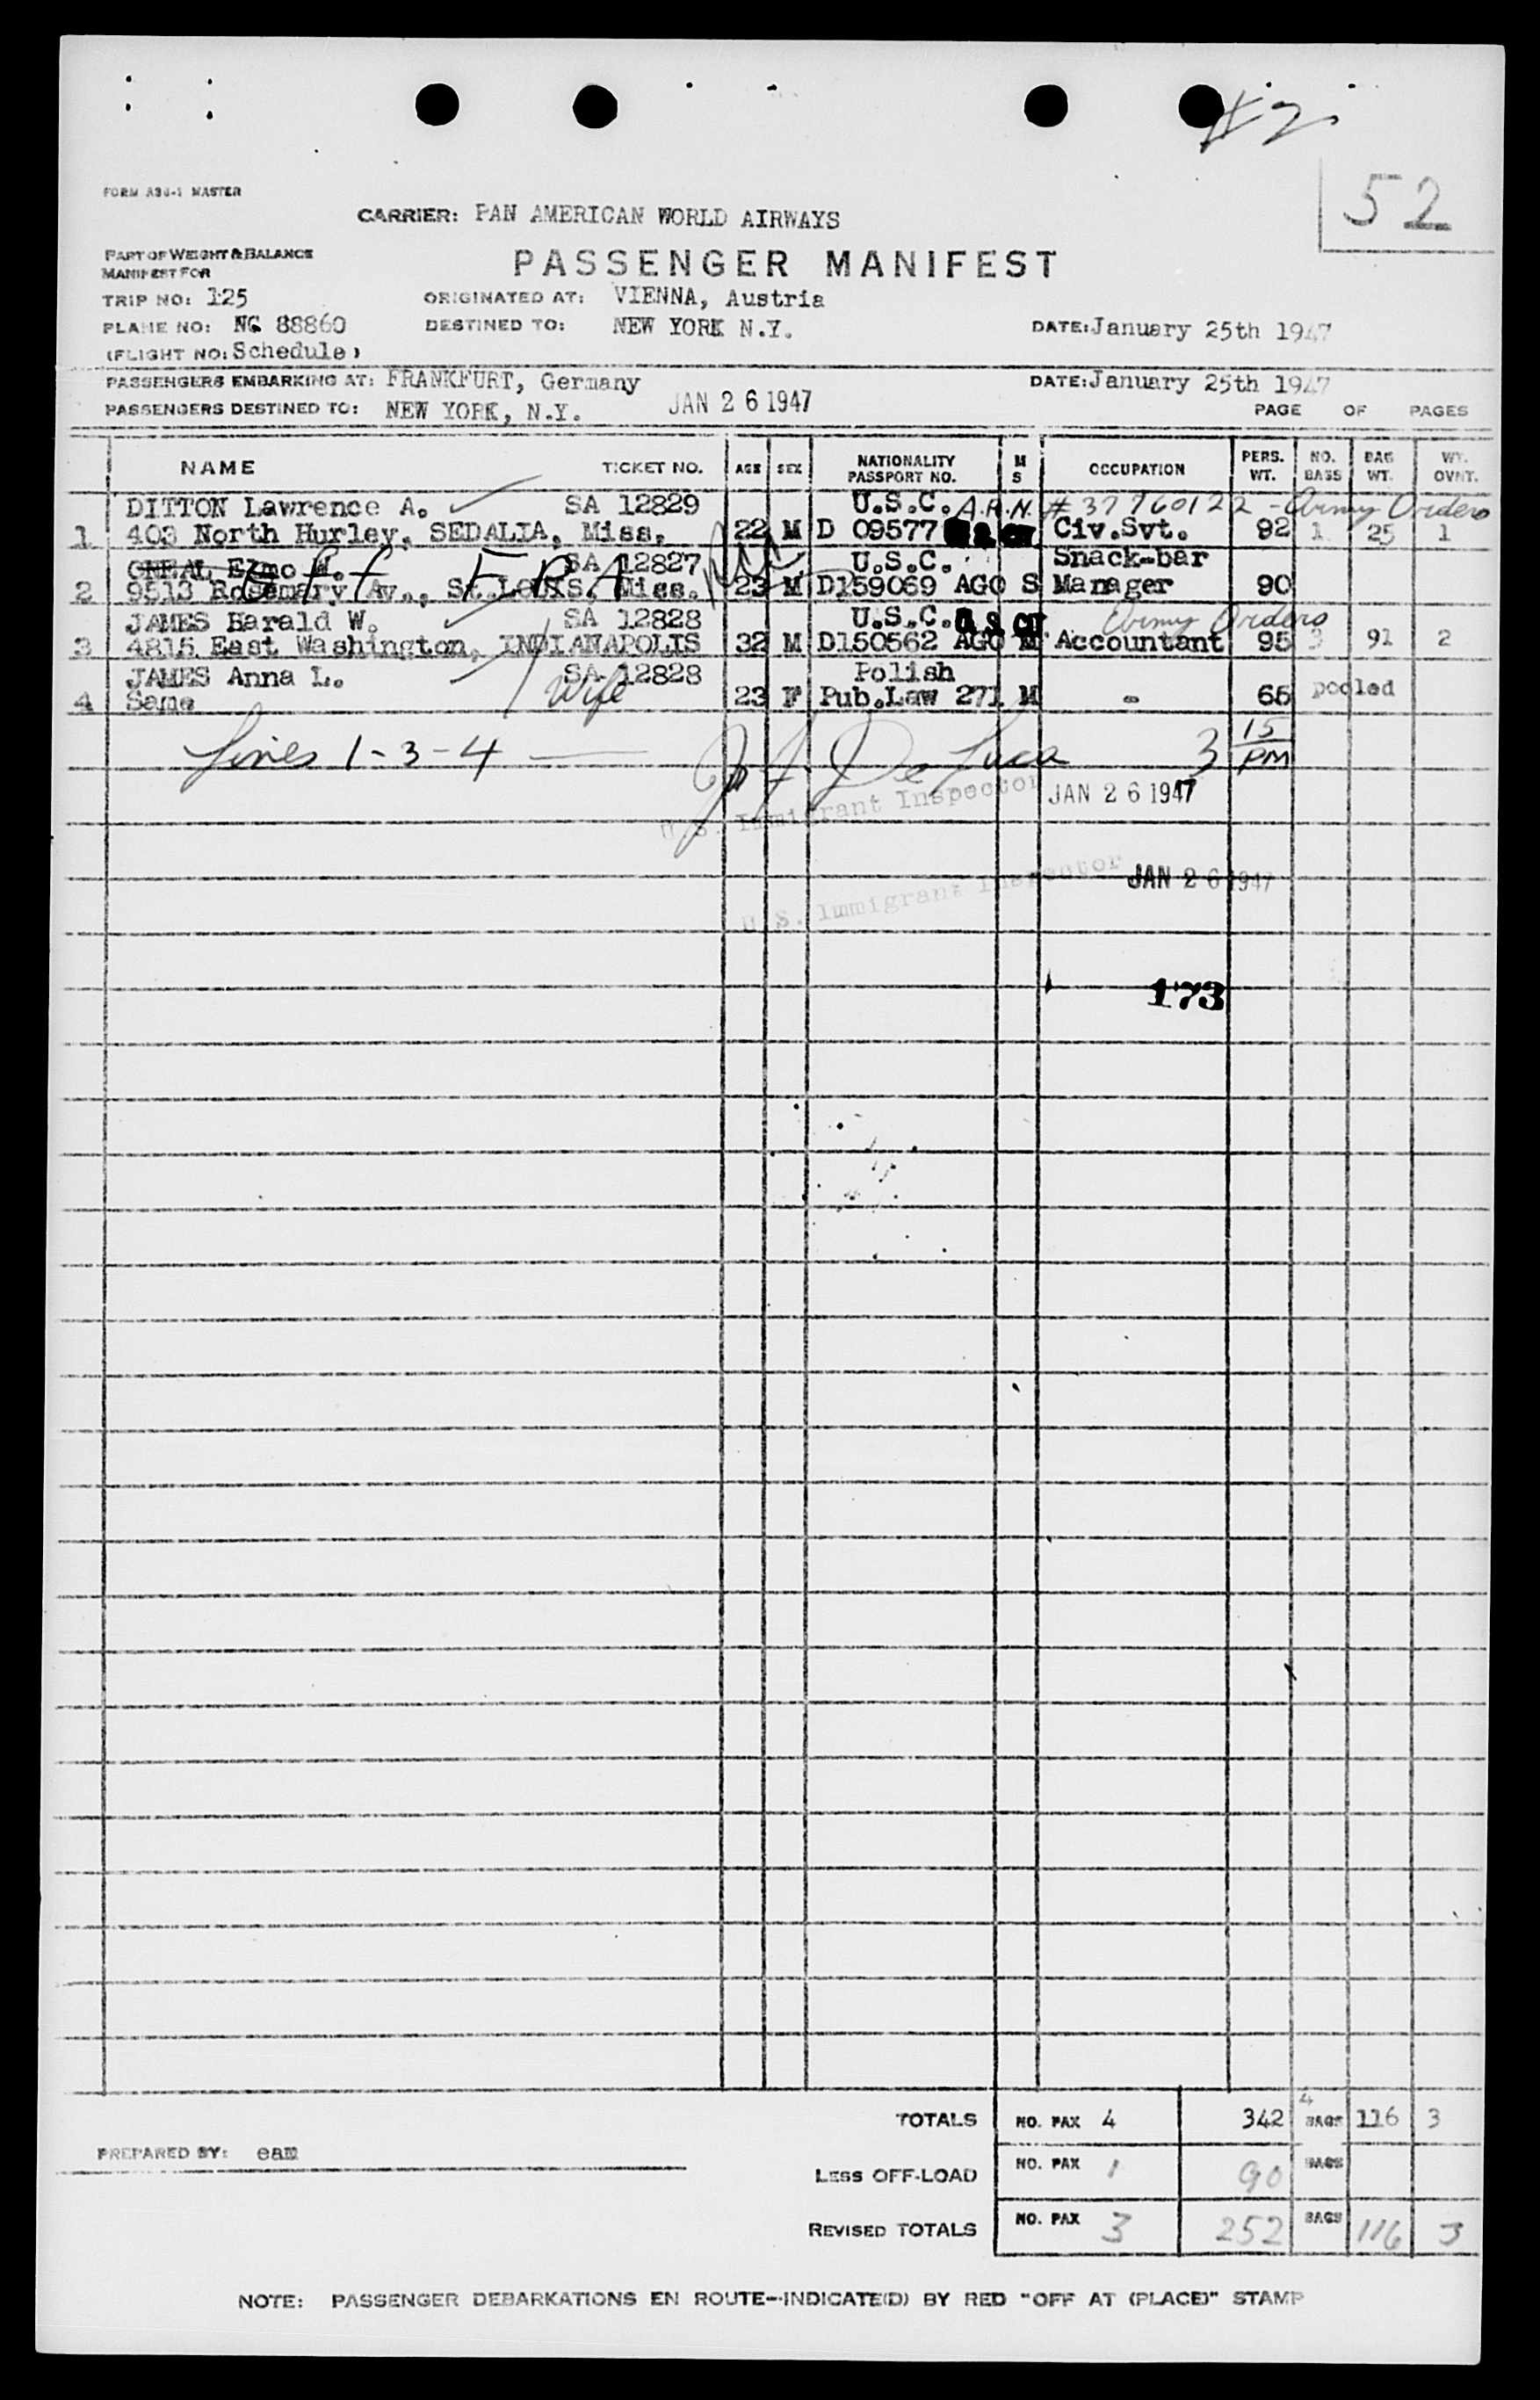 #2
52
FORM A30-1 MASTER
CARRIER: PAN AMERICAN WORLD AIRWAYS
PART OF WEIGHT & BALANCE
MANIFEST FOR
PASSENGER MANIFEST
TRIP NO: 125 ORIGINATED AT: VIENNA, Austria
PLANE NO: NC 88860 DESTINED TO: NEW YORK N.Y. DATE: January 25th 1947
(FLIGHT NO: Schedule)
PASSENGERS EMBARKING AT: FRANKFURT, Germany DATE: January 25th 1947
PASSENGERS DESTINED TO: NEW YORK, N.Y. JAN 26 1947 PAGE OF PAGES
NAME TICKET NO. AGE SEX NATIONALITY PASSPORT NO. M S OCCUPATION PERS. WT. NO. BAGS BAG WT. WT. OVNT.
DITTON Lawrence A. SA 12829 U.S.C. A.R.N. #37760122 - Army Orders
1 403 North Hurley, SEDALIA, Miss. 22 M D 09577 Civ.Svt. 92 1 25 1
ONEAL Elmo W. SA 12827 U.S.C. Snack-bar
Off FRA
2 9513 Rosemary Av., St.Louis. Miss. 23 M D159069 AGO S Manager 90
JAMES Harald W. SA 12828 U.S.C. U S CIT Army Orders
3 4815 East Washington, INDIANAPOLIS 32 M D150562 AGO M Accountant 95 3 91 2
JAMES Anna L. SA 12828 Polish
4 Same Wife 23 F Pub.Law 271 M - 65 pooled
Lines 1-3-4 — De Luca 3 15 PM
U.S. Immigrant Inspector JAN 26 1947
U.S. Immigrant Inspector JAN 26 1947
173
TOTALS NO. PAX 4 342 4 BAGS 116 3
PREPARED BY: eam
LESS OFF-LOAD NO. PAX 1 90 BAGS
REVISED TOTALS NO. PAX 3 252 BAGS 116 3
NOTE: PASSENGER DEBARKATIONS EN ROUTE--INDICATE(D) BY RED "OFF AT (PLACE)" STAMP